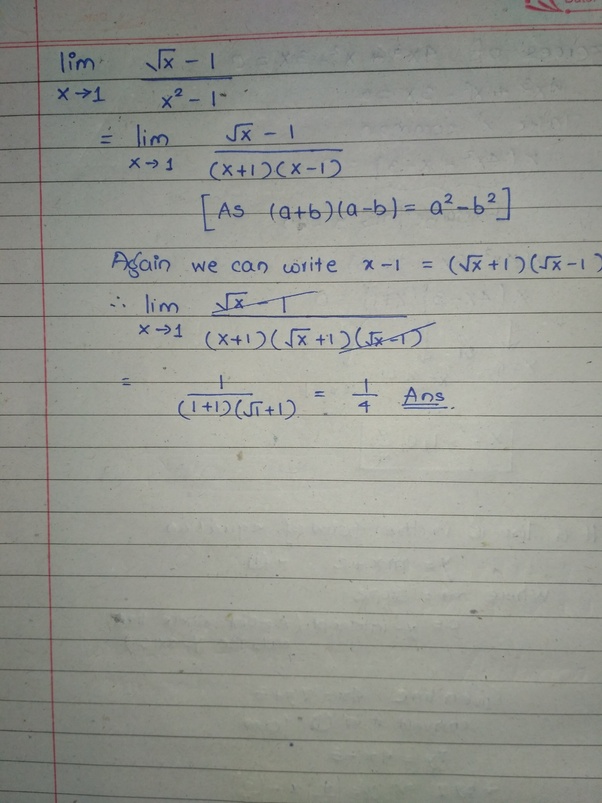 lim √x - 1
x→1 x² - 1
= lim √x - 1
x→1 (x+1)(x-1)
[As (a+b)(a-b) = a²-b²]
Again we can write x-1 = (√x+1)(√x-1)
∴ lim √x - 1
x→1 (x+1)(√x+1)(√x-1)
= 1/(1+1)(√1+1) = 1/4 Ans.